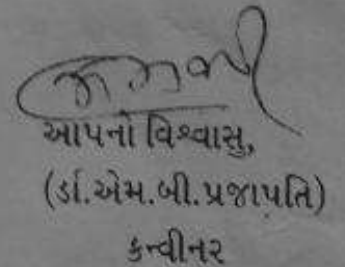 આપનો વિશ્વાસુ,
(ડૉ.એમ.બી.પ્રજાપતિ)
કન્વીનર